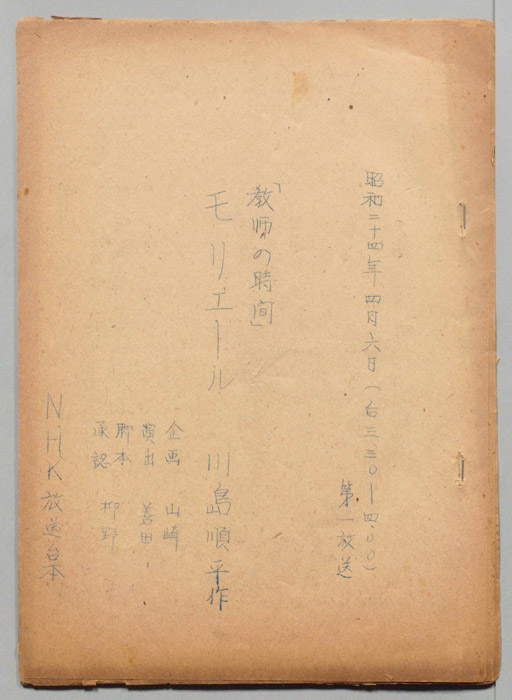 昭和二十四年四月六日(后三、三〇ー四、〇〇)
第一放送
「教師の時间」
モリエール
川島順平作
企画 山崎
演出 若田
脚本
承認 柳野
NHK放送台本